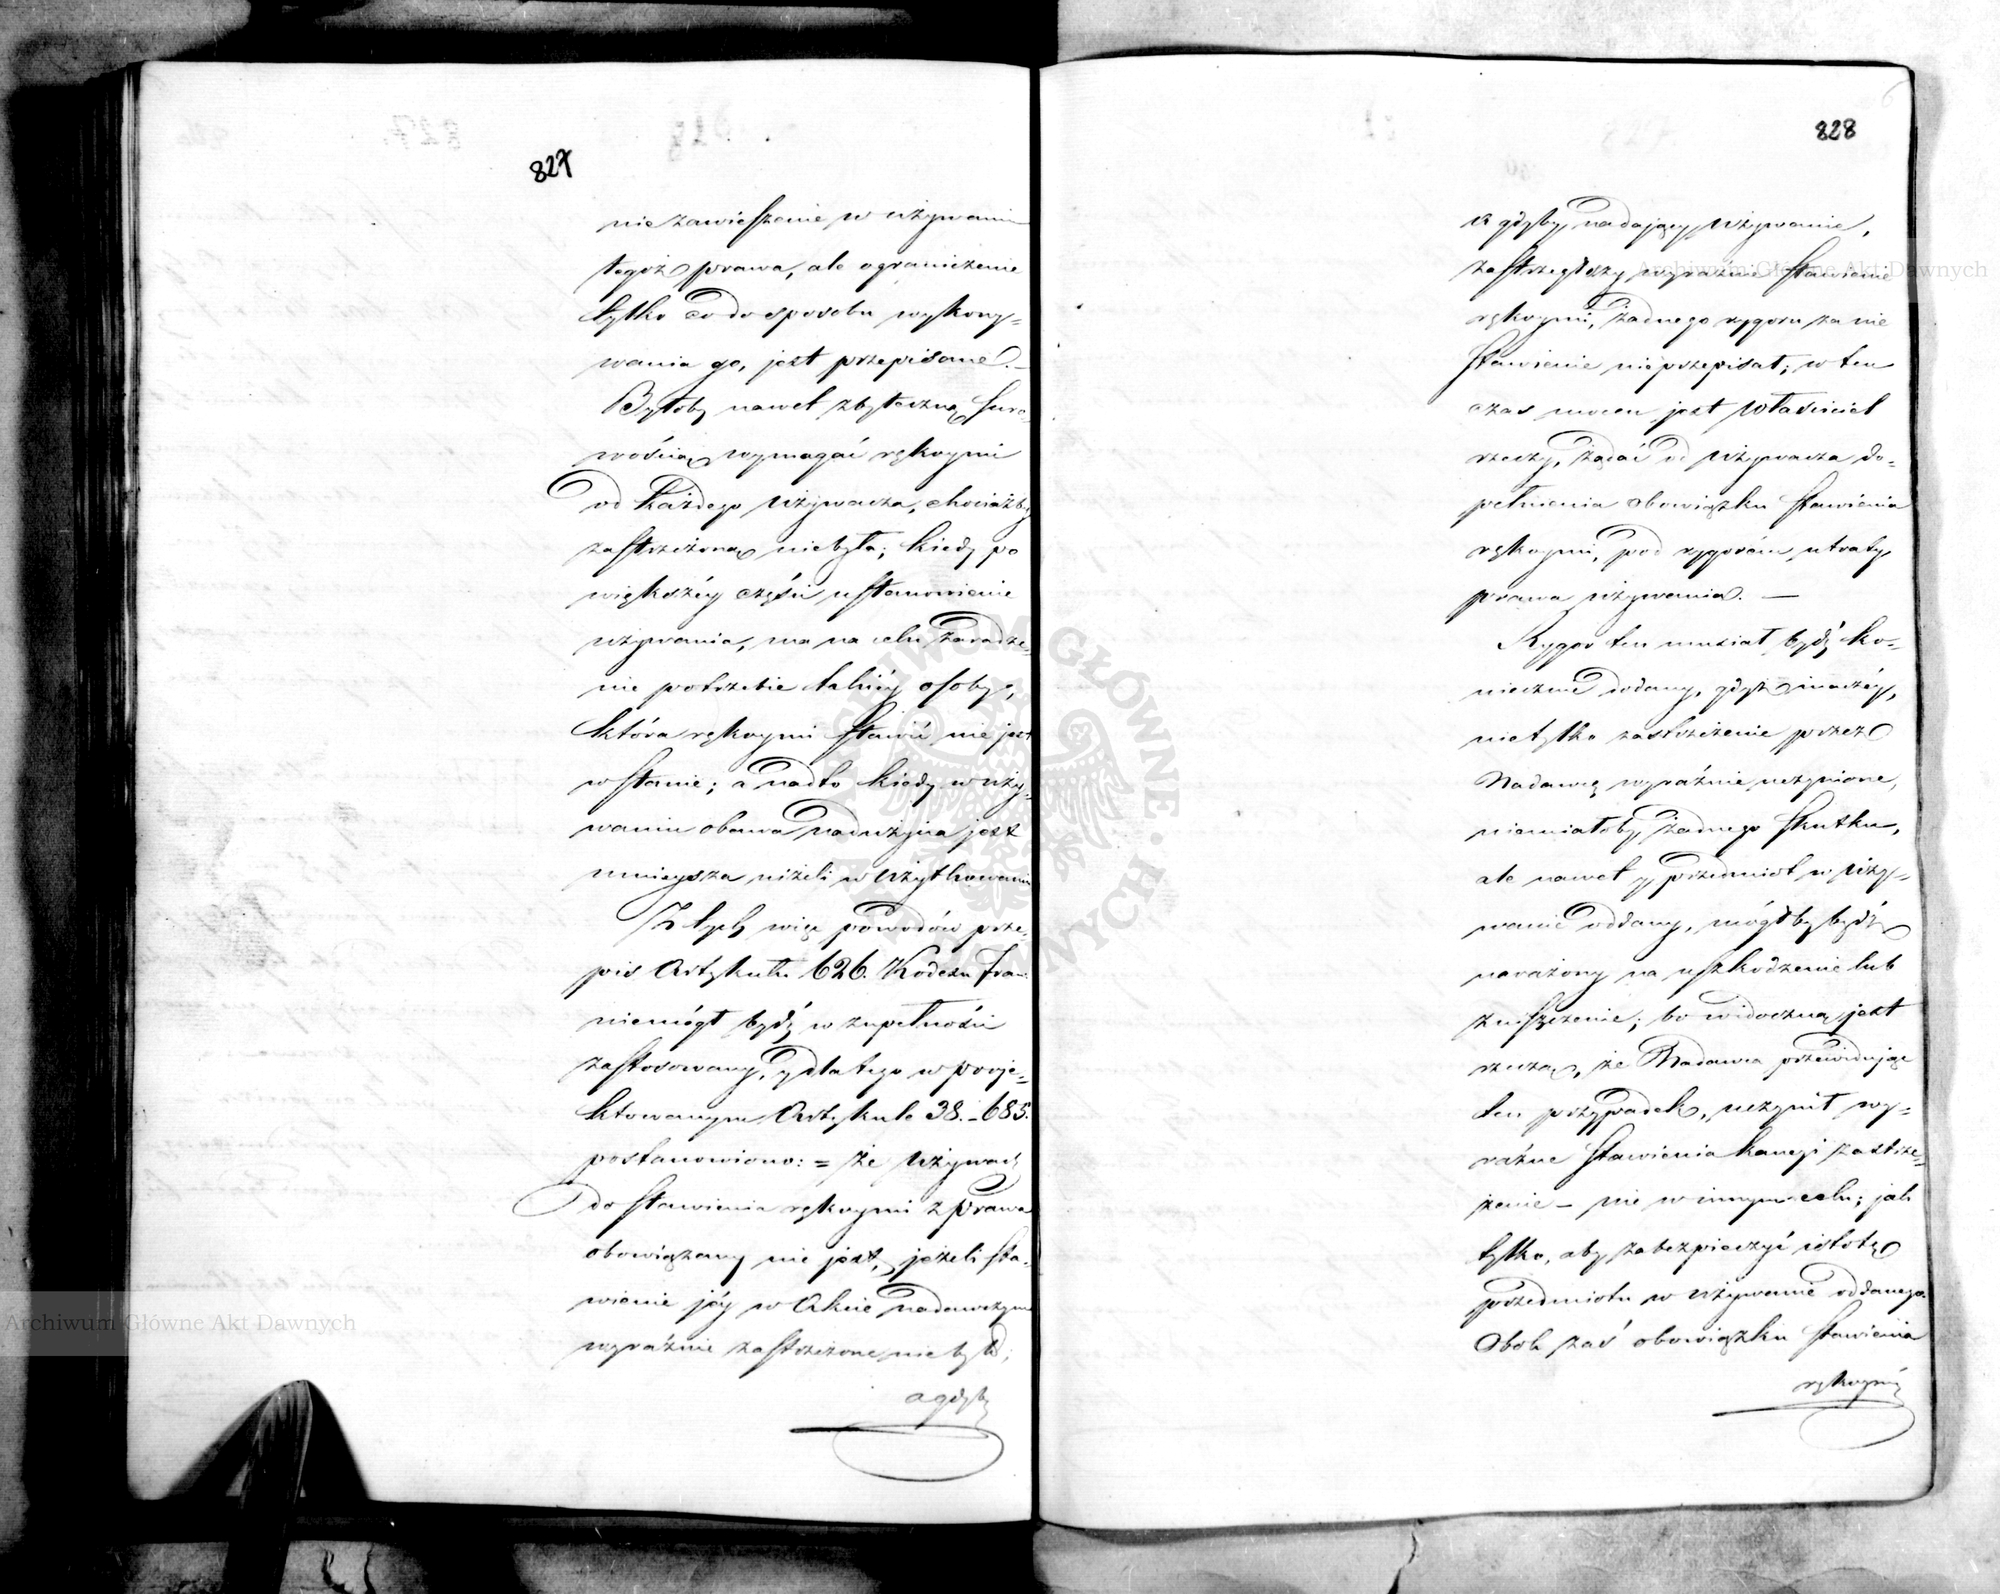 827
nie zawieszenie w używaniu
tegoż prawa, ale ograniczenie
tylko co do sposobu wykony=
wania go, jest przepisane.—
Byłoby nawet zbyteczną suro
wością wymagać rękoymi
od każdego Używacza, chociażby
zastrzeżoną niebyła; kiedy po
większéy części ustanowienie
używania, ma na celu zaradze=
nie potrzebie takiéy osoby,
która rękoymi stawić nie jest
w stanie; a nadto kiedy w uży=
waniu obawa nadużycia jest
mnieysza niżeli w Użytkowaniu
Z tych więc powodów prze=
pis Artykułu 626. Kodexu fran:
niemógł bydź w zupełności
zastosowany, y dla tego w proje=
ktowanym Artykule 38.–685.
postanowiono: = że Używacz
do stawienia rękoymi z prawa
obowiązany nie jest, jeżeli sta=
wienie jéy w Akcie nadawczym
wyraźnie zastrzeżone nie było;
a gdyby
828
a gdyby nadający Używanie,
zastrzegłszy wyraźnie stawienie
rękoymi, żadnego rygoru za nie
stawienie nieprzepisał; w ten
czas mocen jest Właściciel
rzeczy, żądać od Używacza do=
pełnienia obowiązku stawienia
rękoymi, pod rygorem utraty
prawa używania. —
Rygor ten musiał bydź ko=
niecznie dodany, gdyż inaczéy,
nietylko zastrzeżenie przez
Nadawcę wyraźnie uczynione,
niemiałoby żadnego skutku,
ale nawet y przedmiot w Uży=
wanie oddany, mógłby bydź
narażony na uszkodzenie lub
zniszczenie; bo widoczną jest
rzeczą, że Nadawca przewidując
ten przypadek, uczynił wy=
raźne stawienia kaucji zastrze=
żenie – nie w innym celu; jak
tylko, aby zabezpieczyć istotę
przedmiotu w Używanie oddanego.
Obok zaś obowiązku stawienia
rękoymi
Archiwum Główne Akt Dawnych
Archiwum Główne Akt Dawnych